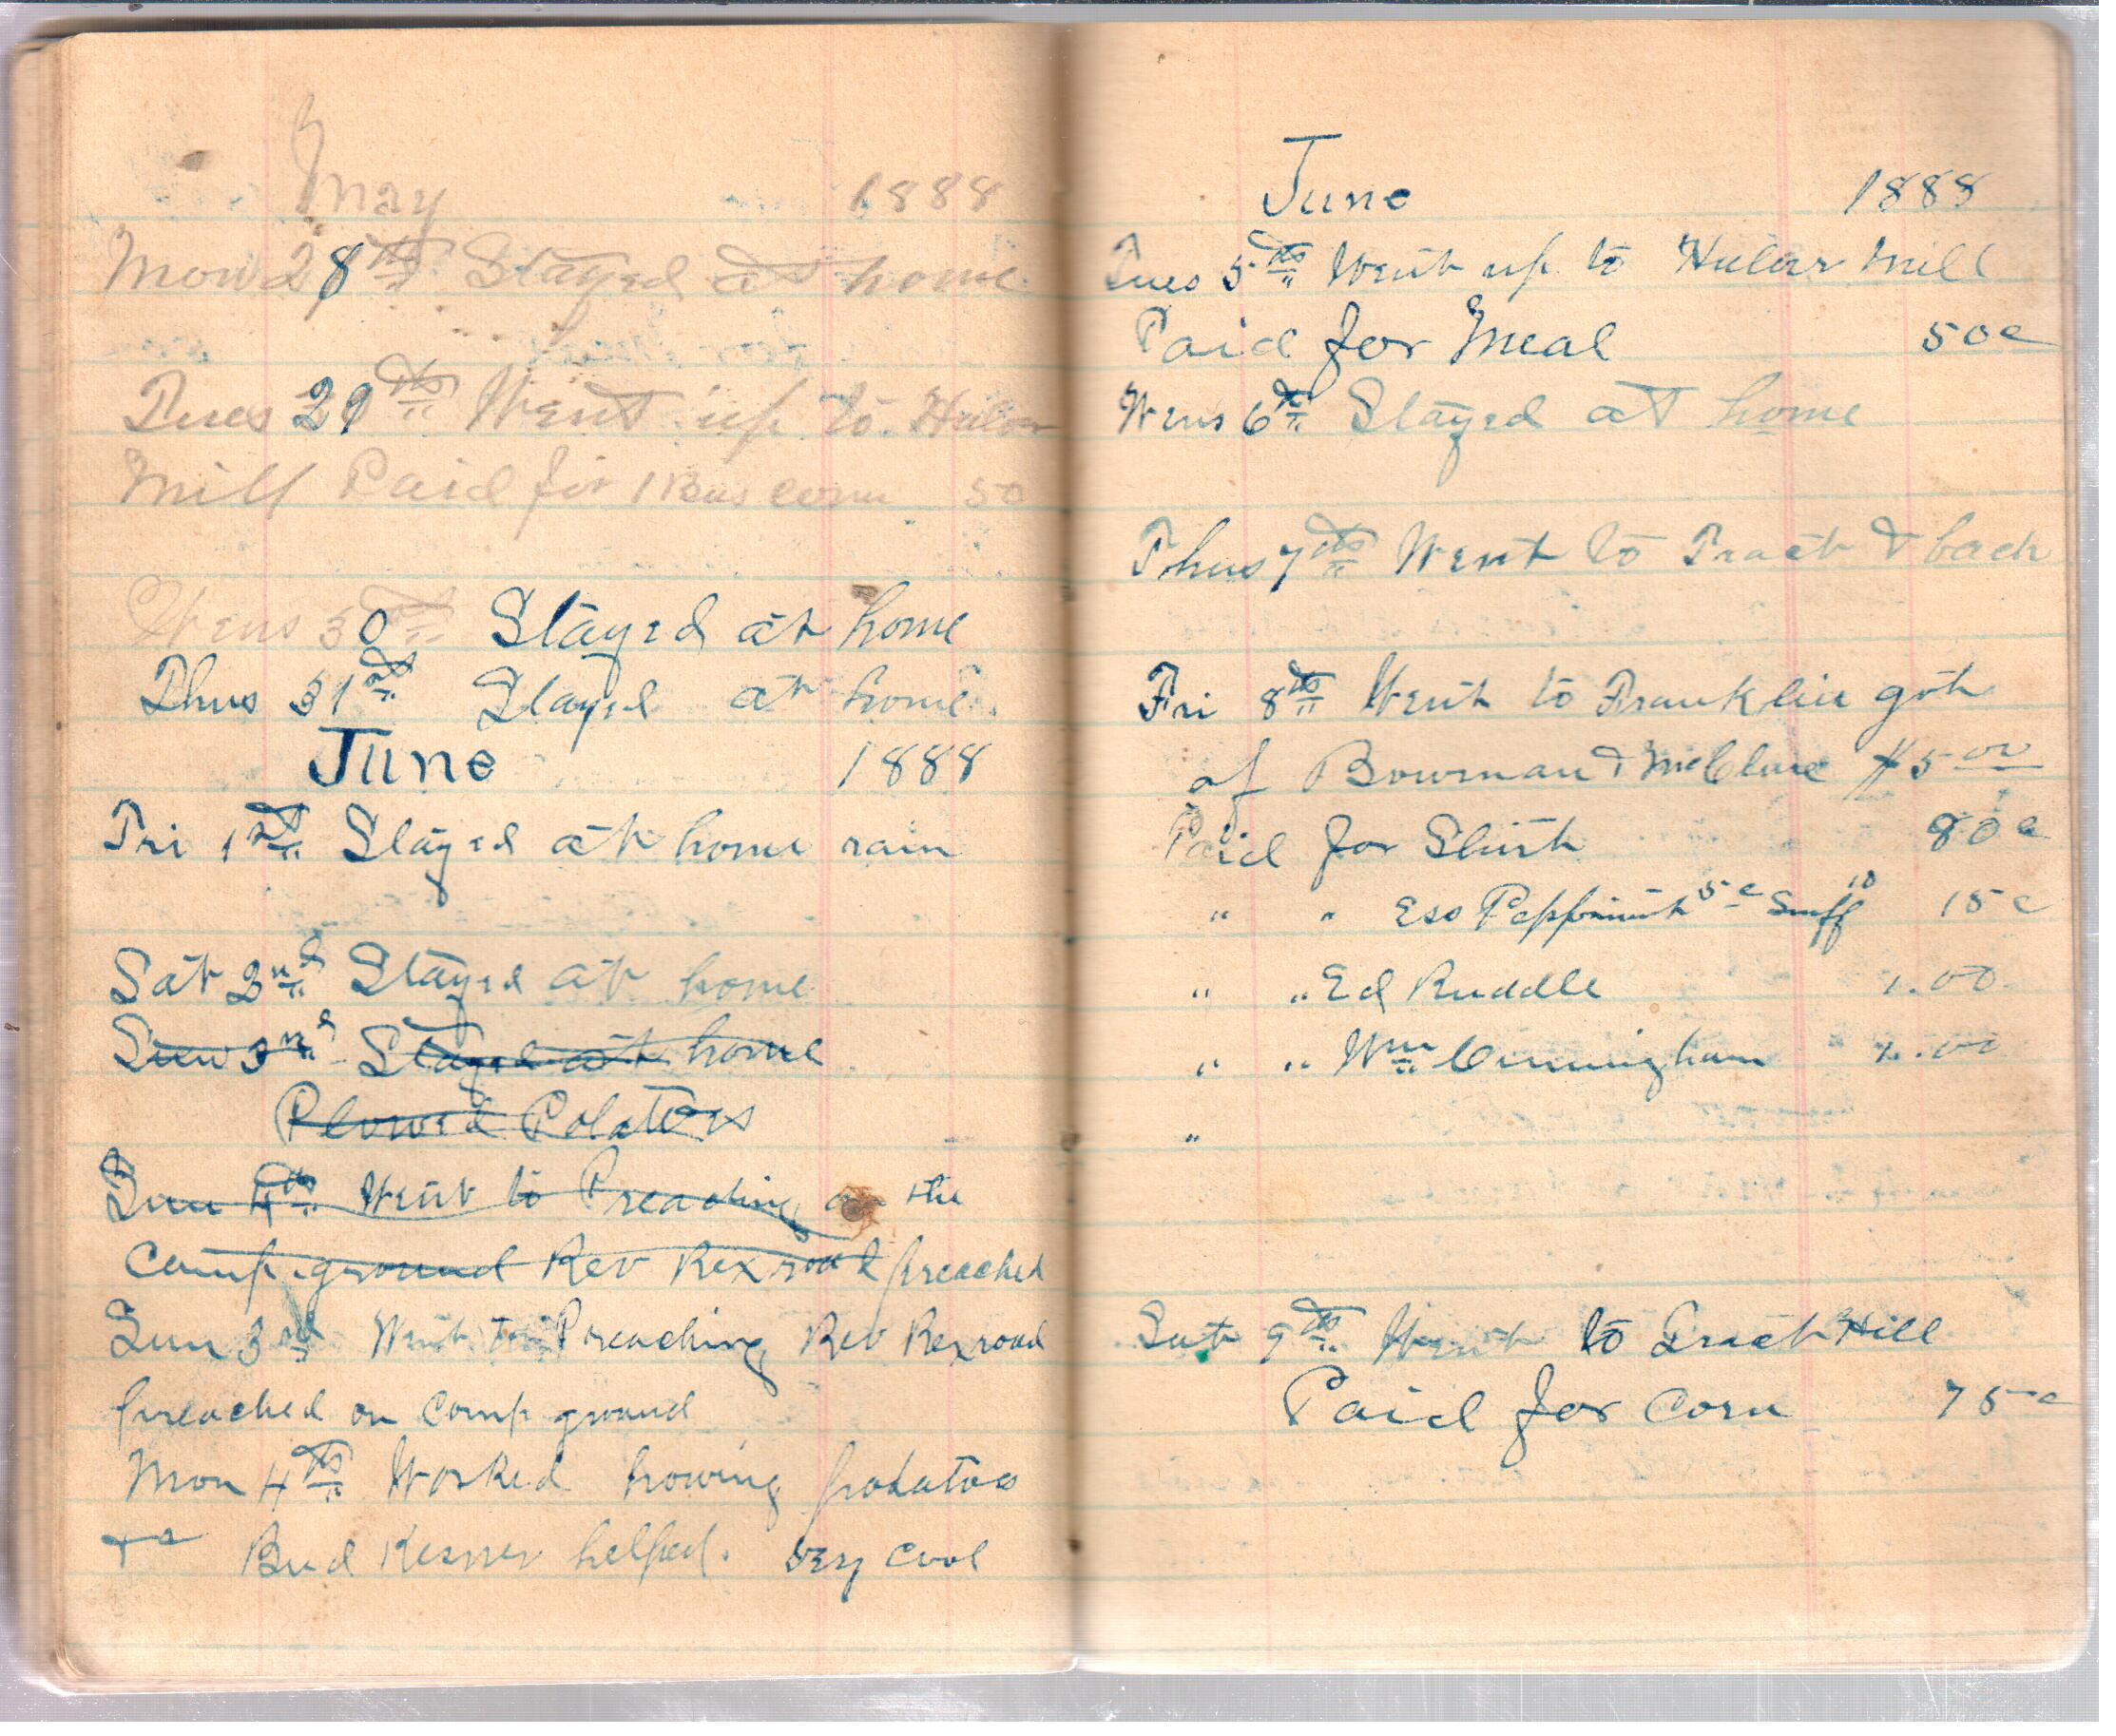 May 1888
Mon 28th Stayed at home
Tues 29th Went up to
Mill Paid for 1 Bus corn 50
Wens 30th Stayed at home
Thus 31st Stayed at home
June 1888
Fri 1st Stayed at home rain
Sat 2nd Stayed at home
Sun 3rd Stayed at home
Plowed Potatoes
Sun 4th Went to Preaching on the
Camp ground Rev Rexroad preached
Sun 3rd Went to Preaching Rev Rexroad
preached on Camp ground
Mon 4th Worked howing potatoes
Bud Kesner helped. very cool
June 1888
Tues 5th Went up to Mill
Paid for Meal 50c
Wens 6th Stayed at home
Thus 7th Went to Tract & back
Fri 8th Went to Franklin got
of Bowman & McClure $5.00
Paid for Shirt 80c
" " Ess Peppmint 5c Snuff 10 15c
" " Ed Ruddle 1.00
" " Wm Cunningham 1.00
"
Sat 9th Went to Tract Hill
Paid for Corn 75c